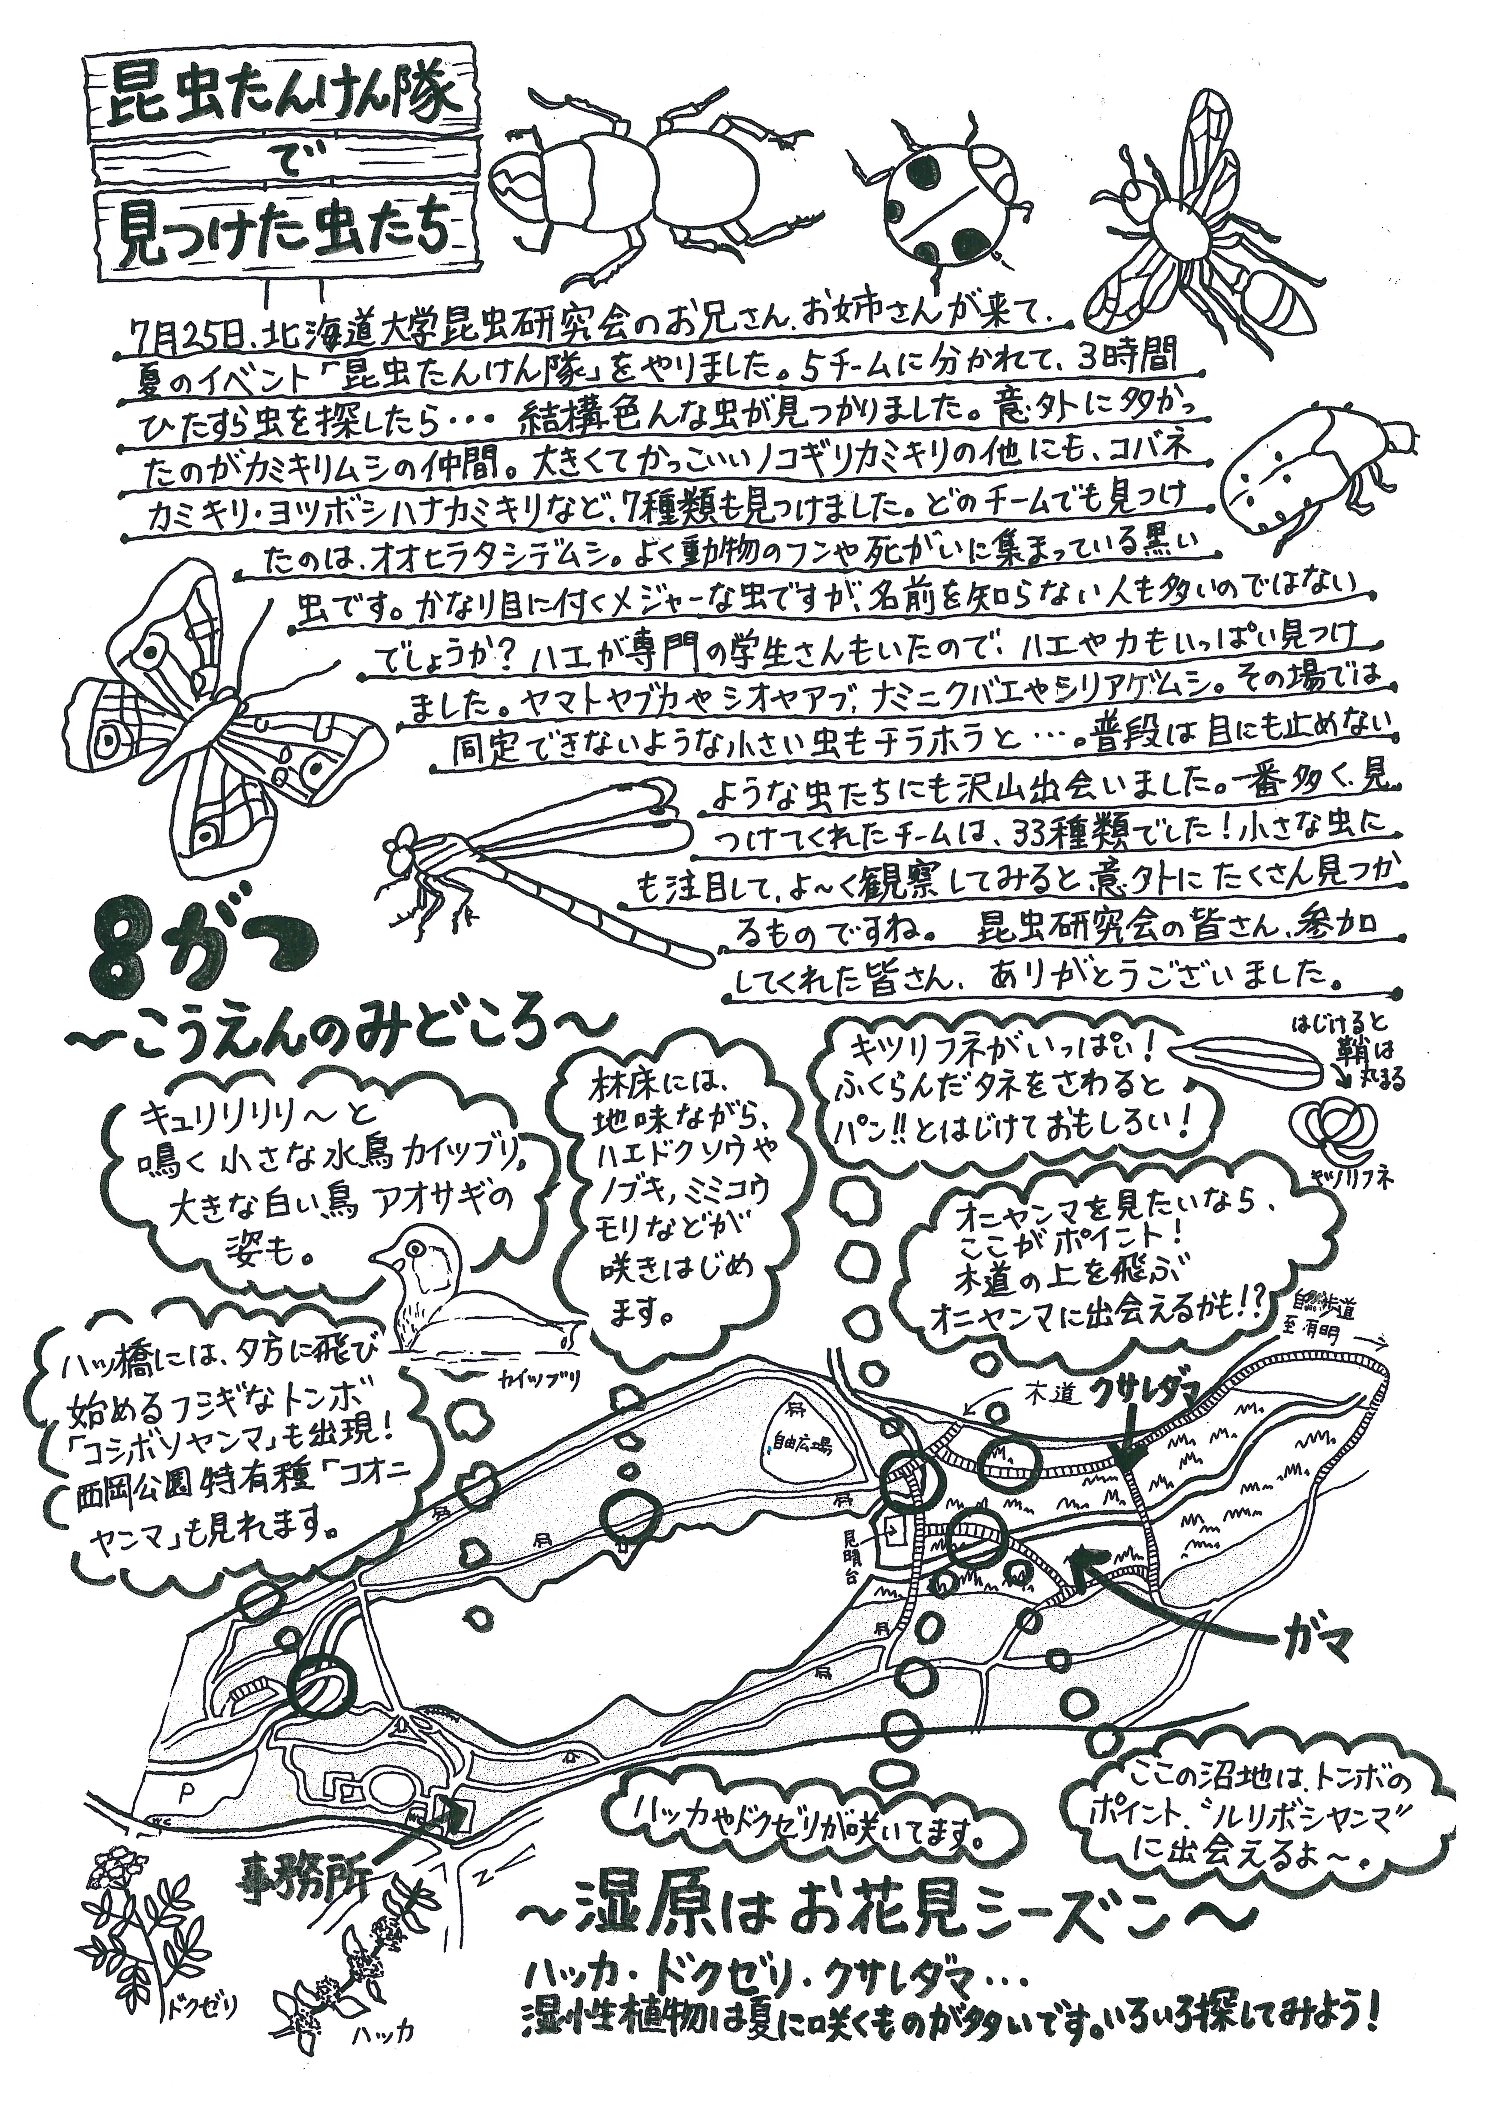 昆虫たんけん隊
で
見つけた虫たち
7月25日、北海道大学昆虫研究会のお兄さん、お姉さんが来て、
夏のイベント「昆虫たんけん隊」をやりました。5チームに分かれて、3時間
ひたすら虫を探したら・・・ 結構色んな虫が見つかりました。意外に多かっ
たのがカミキリムシの仲間。大きくてかっこいいノコギリカミキリの他にも、コバネ
カミキリ・ヨツボシハナカミキリなど、7種類も見つけました。どのチームでも見つけ
たのは、オオヒラタシデムシ。よく動物のフンや死がいに集まっている黒い
虫です。かなり目に付くメジャーな虫ですが、名前を知らない人も多いのではない
でしょうか?ハエが専門の学生さんもいたので、ハエやカもいっぱい見つけ
ました。ヤマトヤブカやシオヤアブ、ナミニクバエやシリアゲムシ。その場では
同定できないような小さい虫もチラホラと・・・。普段は目にも止めない
ような虫たちにも沢山出会いました。一番多く見
つけてくれたチームは、33種類でした!小さな虫に
も注目して、よ~く観察してみると、意外にたくさん見つか
るものですね。 昆虫研究会の皆さん、参加
してくれた皆さん、ありがとうございました。
8がつ
~こうえんのみどころ~
キュリリリリ~と
鳴く小さな水鳥カイツブリ。
大きな白い鳥アオサギの
姿も。
カイツブリ
林床には、
地味ながら、
ハエドクソウや
ノブキ,ミミコウ
モリなどが
咲きはじめ
ます。
キツリフネがいっぱい!
ふくらんだタネをさわると
パン!!とはじけておもしろい!
はじけると
鞘は
丸まる
キツリフネ
オニヤンマを見たいなら、
ここがポイント!
木道の上を飛ぶ
オニヤンマに出会えるかも!?
自然歩道
至有明
八ッ橋には、夕方に飛び
始めるフシギなトンボ
「コシボソヤンマ」も出現!
西岡公園特有種「コオニ
ヤンマ」も見れます。
木道
クサレダマ
自由広場
見晴台
ガマ
P
事務所
ハッカやドクゼリが咲いてます。
ここの沼地は、トンボの
ポイント、“ルリボシヤンマ”
に出会えるよ~。
ドクゼリ
ハッカ
~湿原はお花見シーズン~
ハッカ・ドクゼリ・クサレダマ・・・
湿性植物は夏に咲くものが多いです。いろいろ探してみよう!